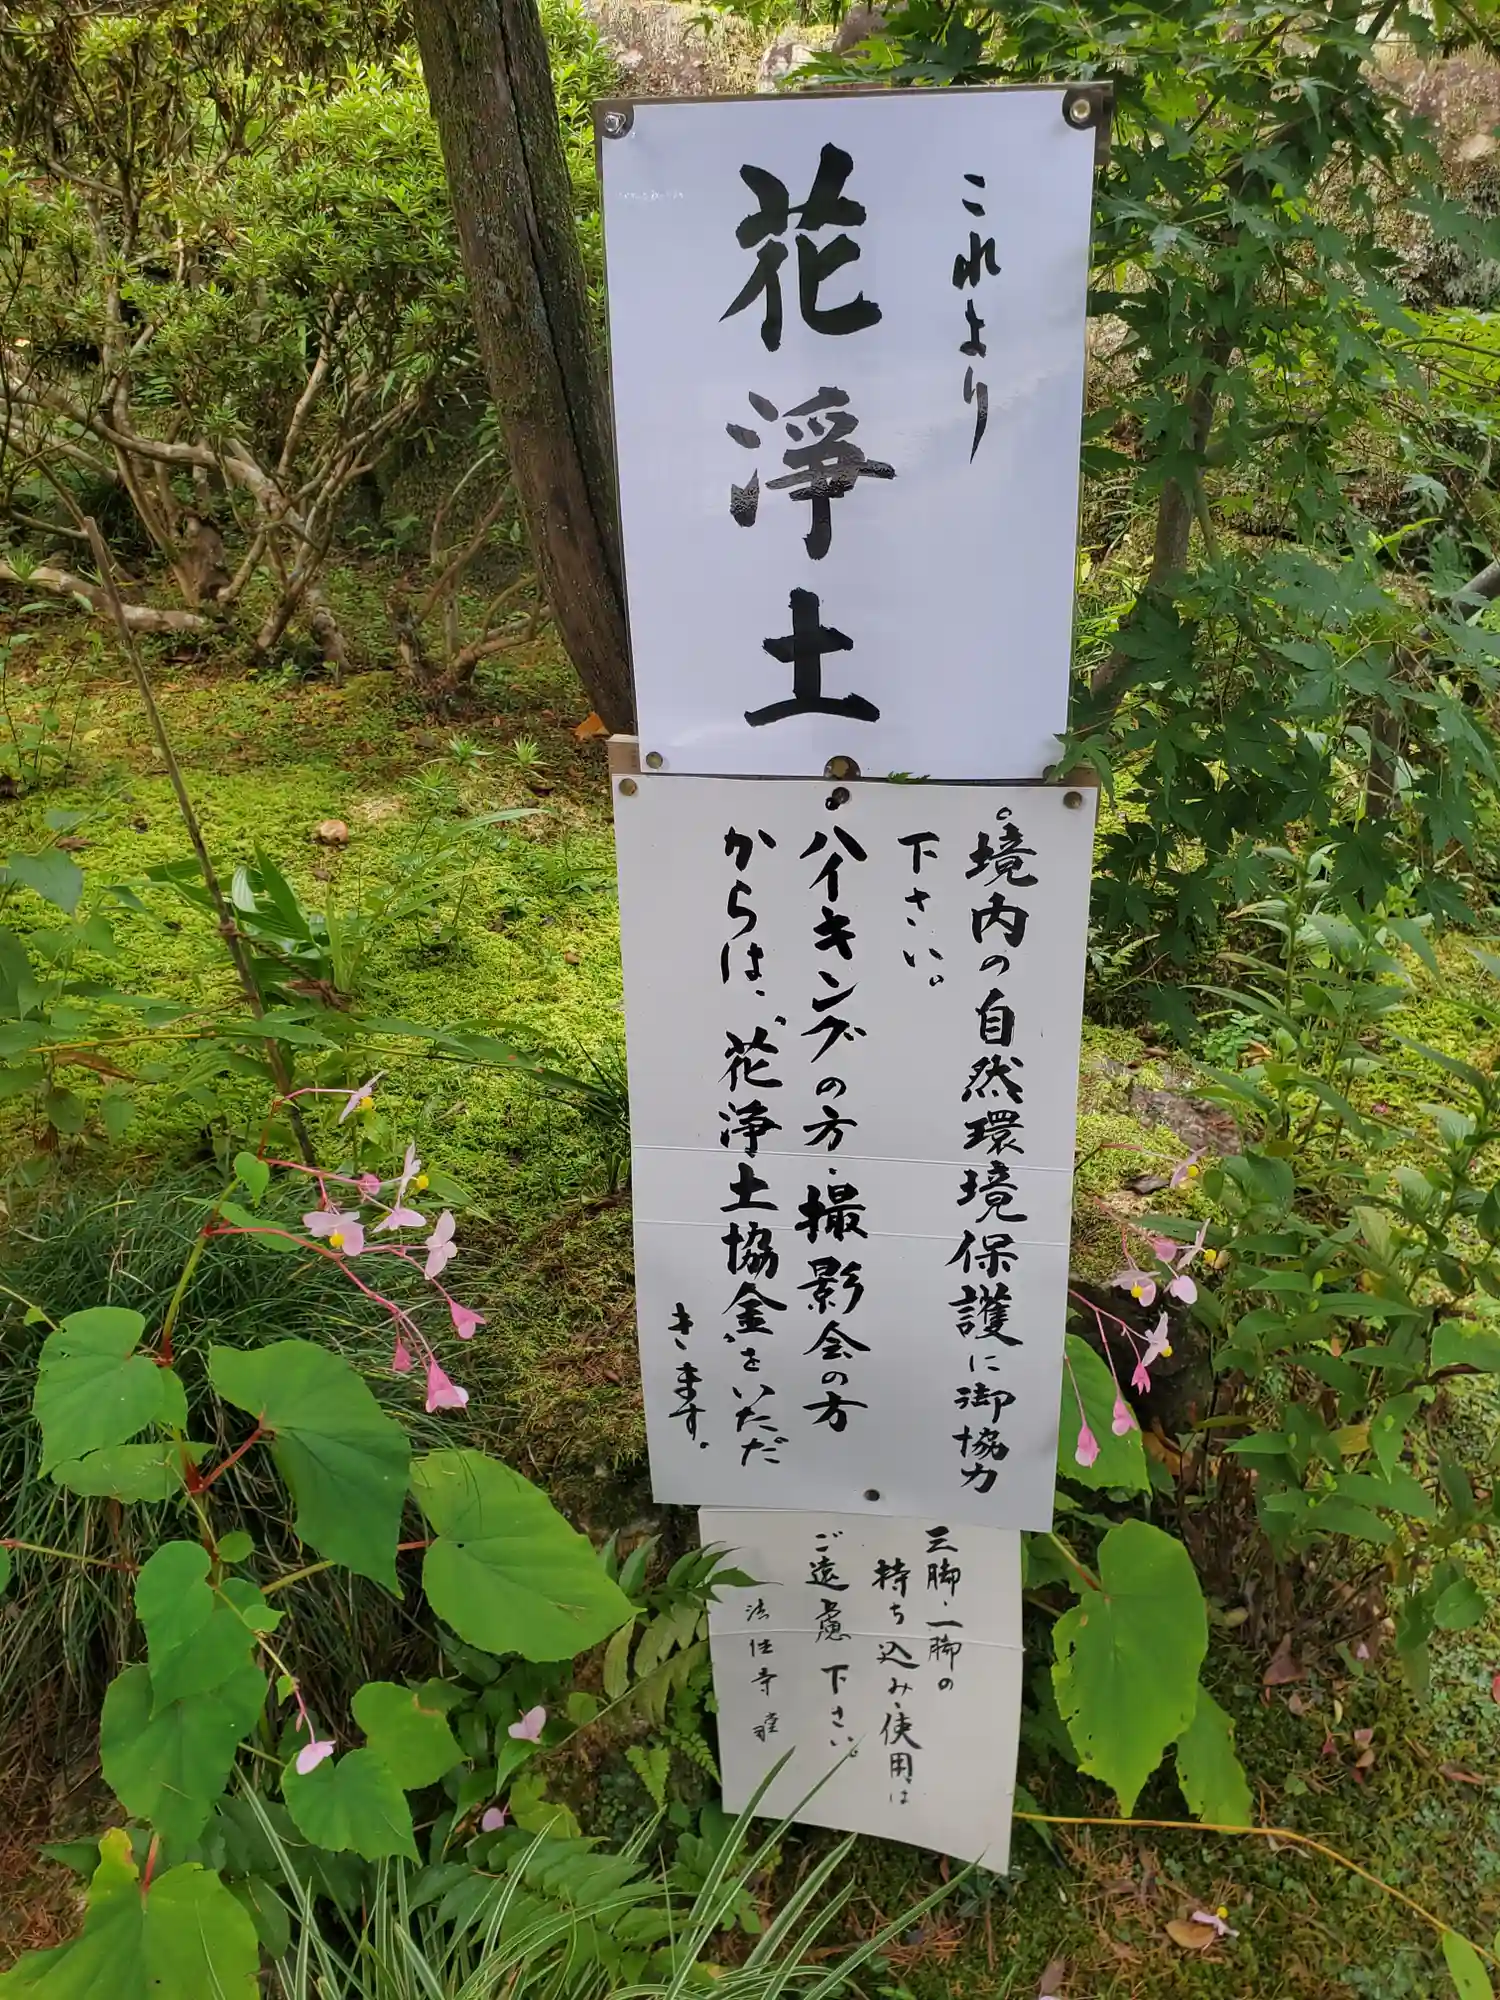 これより
花淨土
。境内の自然環境保護に御協力
下さい。
・ハイキングの方・撮影会の方
からは、"花浄土協金"をいただ
きます。
三脚・一脚の
持ち込み・使用は
ご遠慮下さい。
法住寺